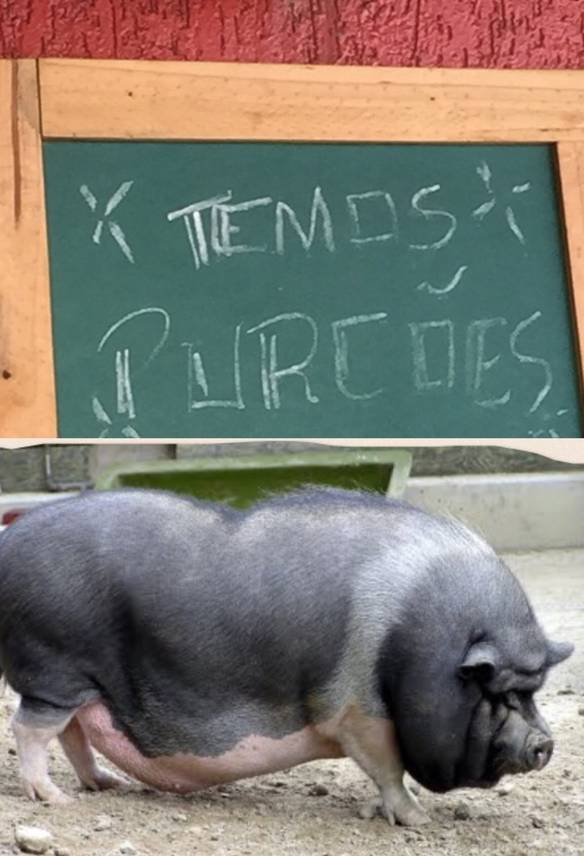 TEMOS
PURCÕES